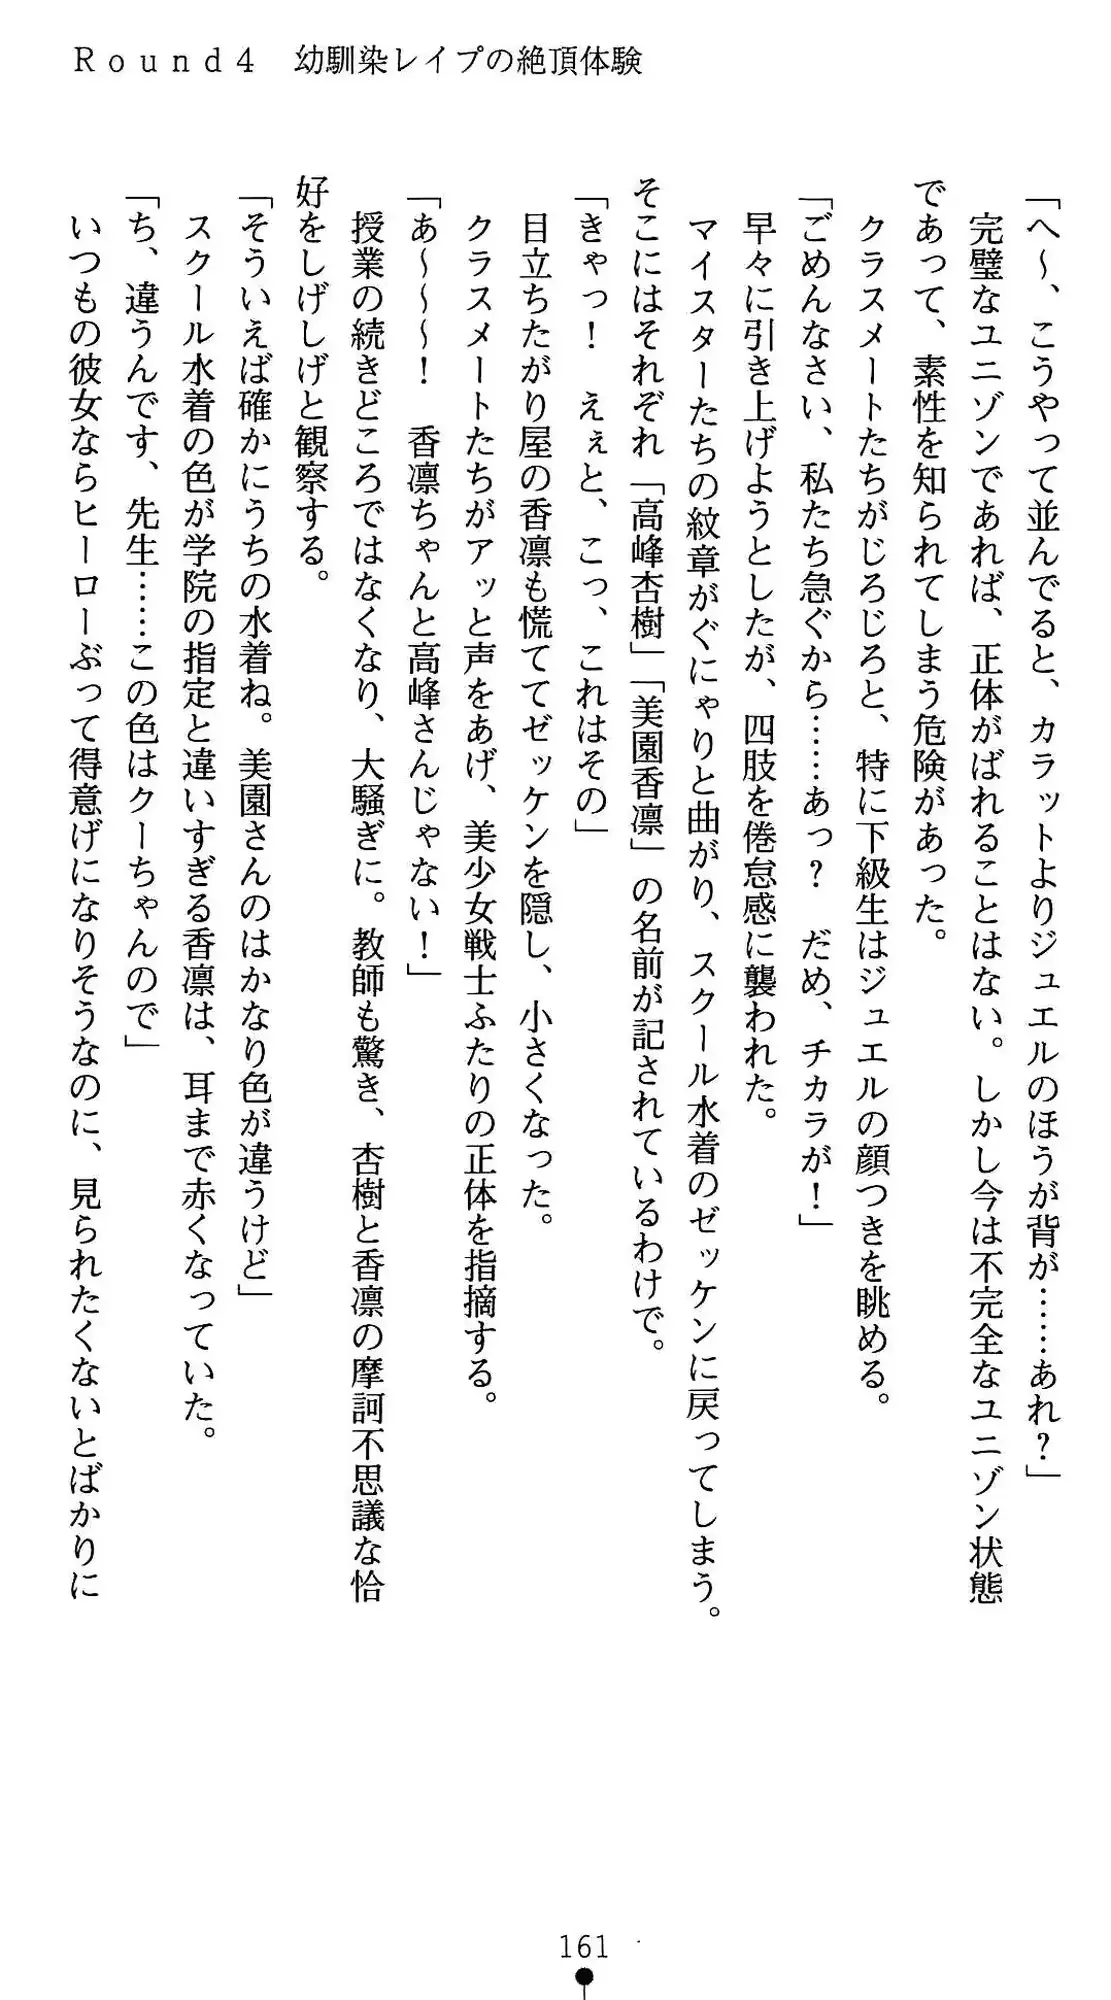 Round4　幼馴染レイプの絶頂体験
「へ～、こうやって並んでると、カラットよりジュエルのほうが背が……あれ？」
完璧なユニゾンであれば、正体がばれることはない。しかし今は不完全なユニゾン状態
であって、素性を知られてしまう危険があった。
クラスメートたちがじろじろと、特に下級生はジュエルの顔つきを眺める。
「ごめんなさい、私たち急ぐから……あっ？　だめ、チカラが！」
早々に引き上げようとしたが、四肢を倦怠感に襲われた。
マイスターたちの紋章がぐにゃりと曲がり、スクール水着のゼッケンに戻ってしまう。
そこにはそれぞれ「高峰杏樹」「美園香凛」の名前が記されているわけで。
「きゃっ！　えぇと、こっ、これはその」
目立ちたがり屋の香凛も慌ててゼッケンを隠し、小さくなった。
クラスメートたちがアッと声をあげ、美少女戦士ふたりの正体を指摘する。
「あ～～～！　香凛ちゃんと高峰さんじゃない！」
授業の続きどころではなくなり、大騒ぎに。教師も驚き、杏樹と香凛の摩訶不思議な恰
好をしげしげと観察する。
「そういえば確かにうちの水着ね。美園さんのはかなり色が違うけど」
スクール水着の色が学院の指定と違いすぎる香凛は、耳まで赤くなっていた。
「ち、違うんです、先生……この色はクーちゃんので」
いつもの彼女ならヒーローぶって得意げになりそうなのに、見られたくないとばかりに
161